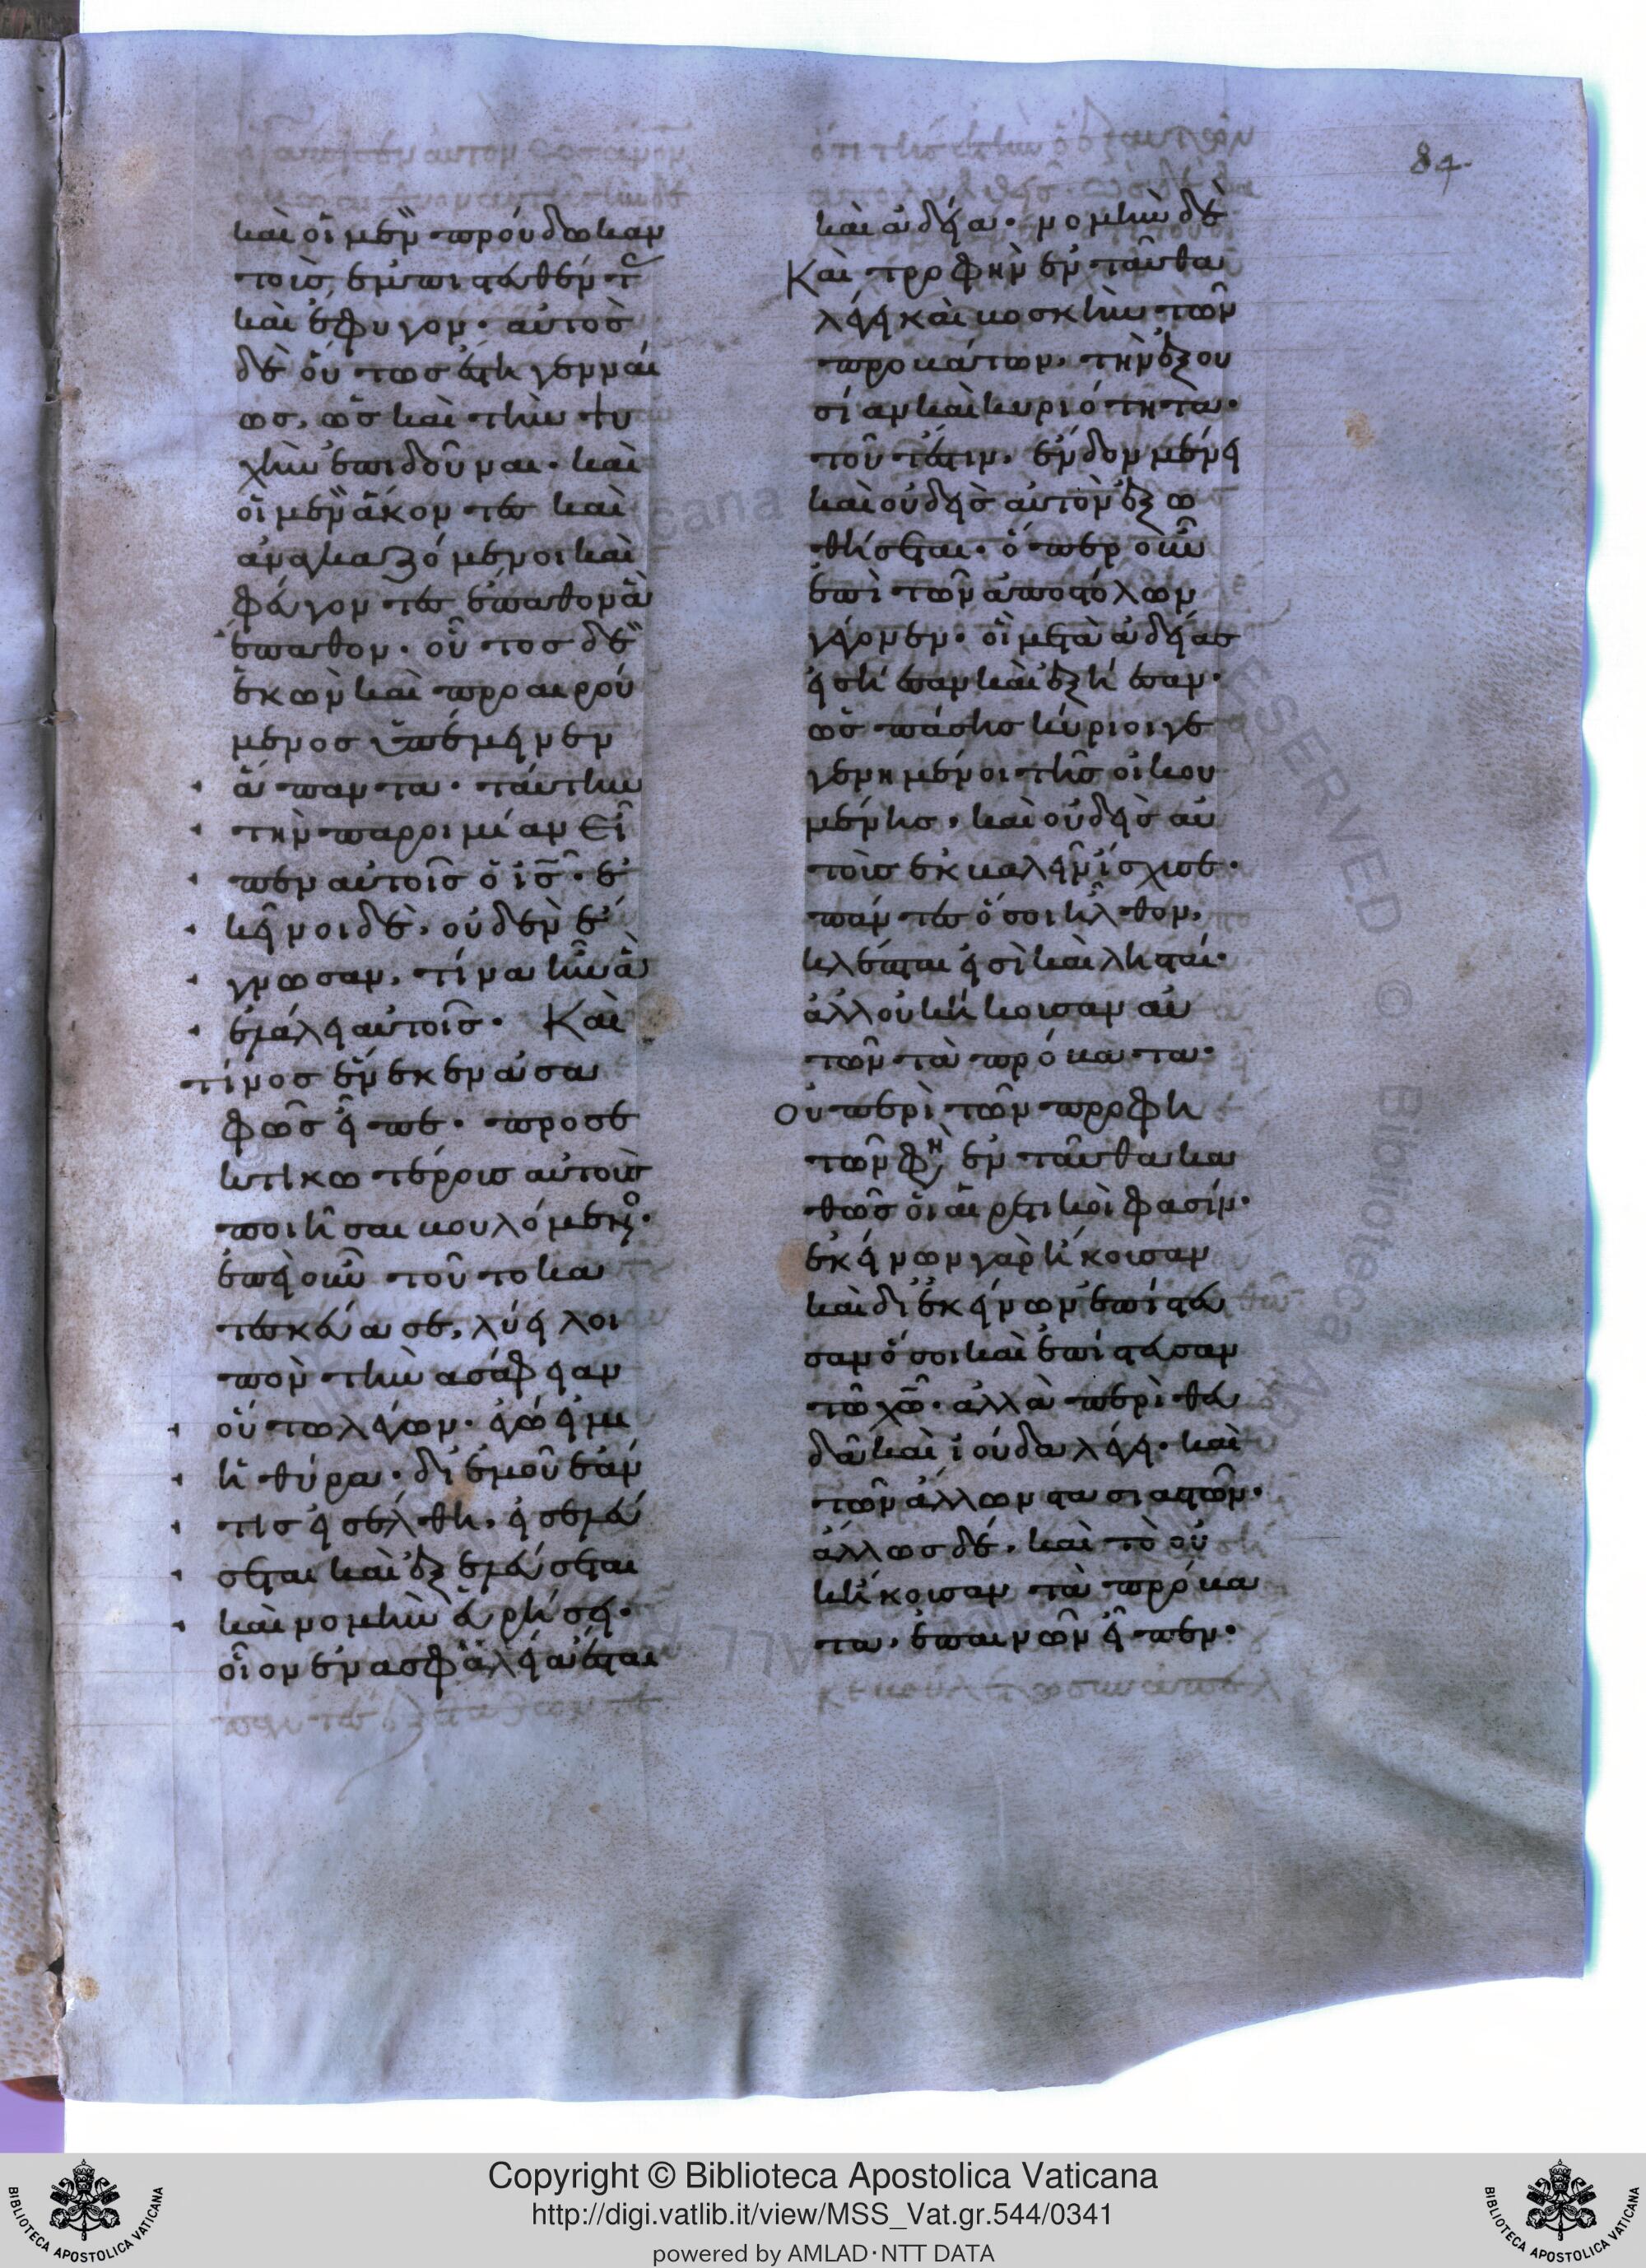 84.
καὶ οἱ μὲν προύδωκαν
τοὺς ἐμπιστευθέντ
καὶ ἔφυγον· αὐτὸς
δὲ οὕτως ἔστη γενναί
ως, ὡς καὶ τὴν ψυ
χὴν ἐπιδοῦναι· καὶ
οἱ μὲν ἄκοντες καὶ
ἀναγκαζόμενοι καὶ
φεύγοντες ἔπαθον ἃ
ἔπαθον· οὗτος δὲ
ἑκὼν καὶ προαιρού
μενος ὑπέμεινεν
ἅπαντα· ταύτην
τὴν παροιμίαν εἶ
πεν αὐτοῖς ὁ ἰς· ἐ
κεῖνοι δὲ, οὐδὲν ἔ
γνωσαν, τίνα ἦν ἃ
ἐλάλει αὐτοῖς. Καὶ
τίνος ἕνεκεν ἀσα
φῶς εἶπε· προσε
κτικωτέρους αὐτοὺς
ποιῆσαι βουλόμενος·
ἐπεὶ οὖν τοῦτο κα
τεσκεύασε, λύει λοι
πὸν τὴν ἀσάφειαν
οὕτω λέγων· ἐγώ εἰμι
ἡ θύρα· δι' ἐμοῦ ἐάν
τις εἰσέλθη, εἰσελεύ
σεται καὶ ἐξελεύσεται
καὶ νομὴν εὑρήσει·
οἷον ἐν ἀσφαλεία ἔσται
καὶ ἀδεία· νομὴν δὲ
Καὶ τροφὴν ἐνταῦθα
λέγει καὶ βοσκὴν τῶν
προβάτων, τὴν ἐξου
σίαν καὶ κυριότητα·
τουτέστιν, ἔνδον μένει
καὶ οὐδεὶς αὐτὸν ἐξω
θήσεται· ὅπερ οὖν
ἐπὶ τῶν ἀποστόλων
γέγονεν· οἳ μετὰ ἀδείας
εἰσήεσαν καὶ ἐξήεσαν·
ὡς πάσης κύριοι γε
γενημένοι τῆς οἰκου
μένης, καὶ οὐδεὶς αὐ
τοὺς ἐκβαλεῖν ἴσχυσε·
πάντες ὅσοι ἦλθον,
κλέπται εἰσὶ καὶ λησταί·
ἀλλ' οὐκ ἤκουσαν αὐ
τῶν τὰ πρόβατα·
Οὐ περὶ τῶν προφη
τῶν φη ἐνταῦθα κα
θὼς οἱ αἱρετικοί φασίν·
ἐκείνων γὰρ ἤκουσαν
καὶ δι' ἐκείνων ἐπίστευ
σαν ὅσοι καὶ ἐπίστευσαν
τῶ χῶ· ἀλλὰ περὶ θευ
δᾶ καὶ ἰούδα λέγει· καὶ
τῶν ἄλλων στασιαστῶν·
ἄλλως δὲ, καὶ τὸ οὐ
κ ἤκουσαν τὰ πρόβα
τα, ἐπαινῶν εἶπεν·
Copyright © Biblioteca Apostolica Vaticana
http://digi.vatlib.it/view/MSS_Vat.gr.544/0341
powered by AMLAD·NTT DATA
BIBLIOTECA APOSTOLICA VATICANA
BIBLIOTECA APOSTOLICA VATICANA